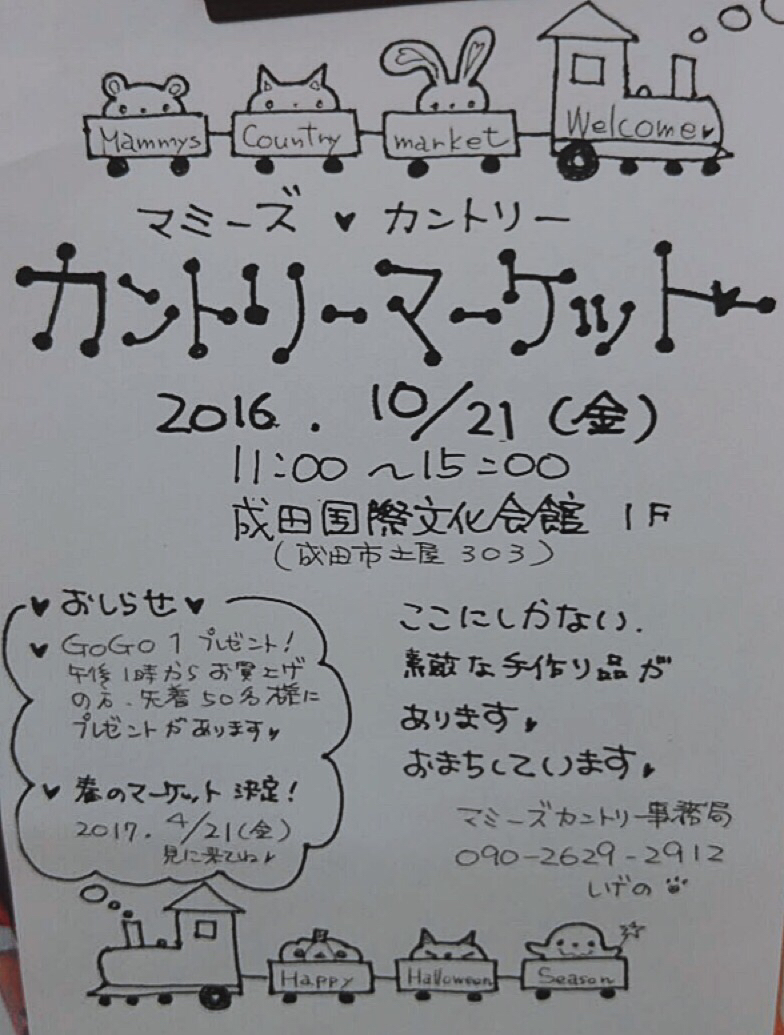 Mammys Country market Welcome♥
マミーズ ♥ カントリー
カントリーマーケット♥
2016. 10/21(金)
11:00〜15:00
成田国際文化会館 1F
(成田市土屋 303)
♥ おしらせ ♥
♥ GoGo 1 プレゼント!
午後1時からお買上げ
の方、先着50名様に
プレゼントがあります♥
♥ 春のマーケット 決定!
2017. 4/21(金)
見に来てね♥
ここにしかない、
素敵な手作り品が
あります♥
おまちしています♥
マミーズカントリー事務局
090-2629-2912
いげの
Happy Halloween Season